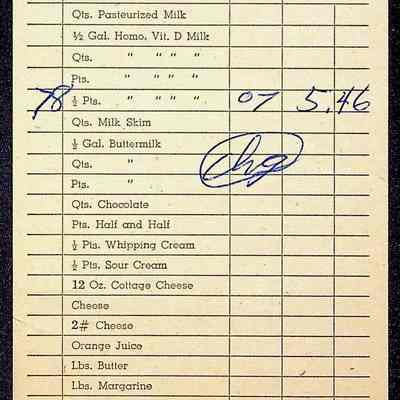 Qts. Pasteurized Milk
½ Gal. Homo. Vit. D Milk
Qts. " " " "
Pts. " " " "
78 ½ Pts. " " " " 07 5.46
Qts. Milk Skim
½ Gal. Buttermilk
Qts. " chg
Pts. "
Qts. Chocolate
Pts. Half and Half
½ Pts. Whipping Cream
½ Pts. Sour Cream
12 Oz. Cottage Cheese
Cheese
2# Cheese
Orange Juice
Lbs. Butter
Lbs. Margarine